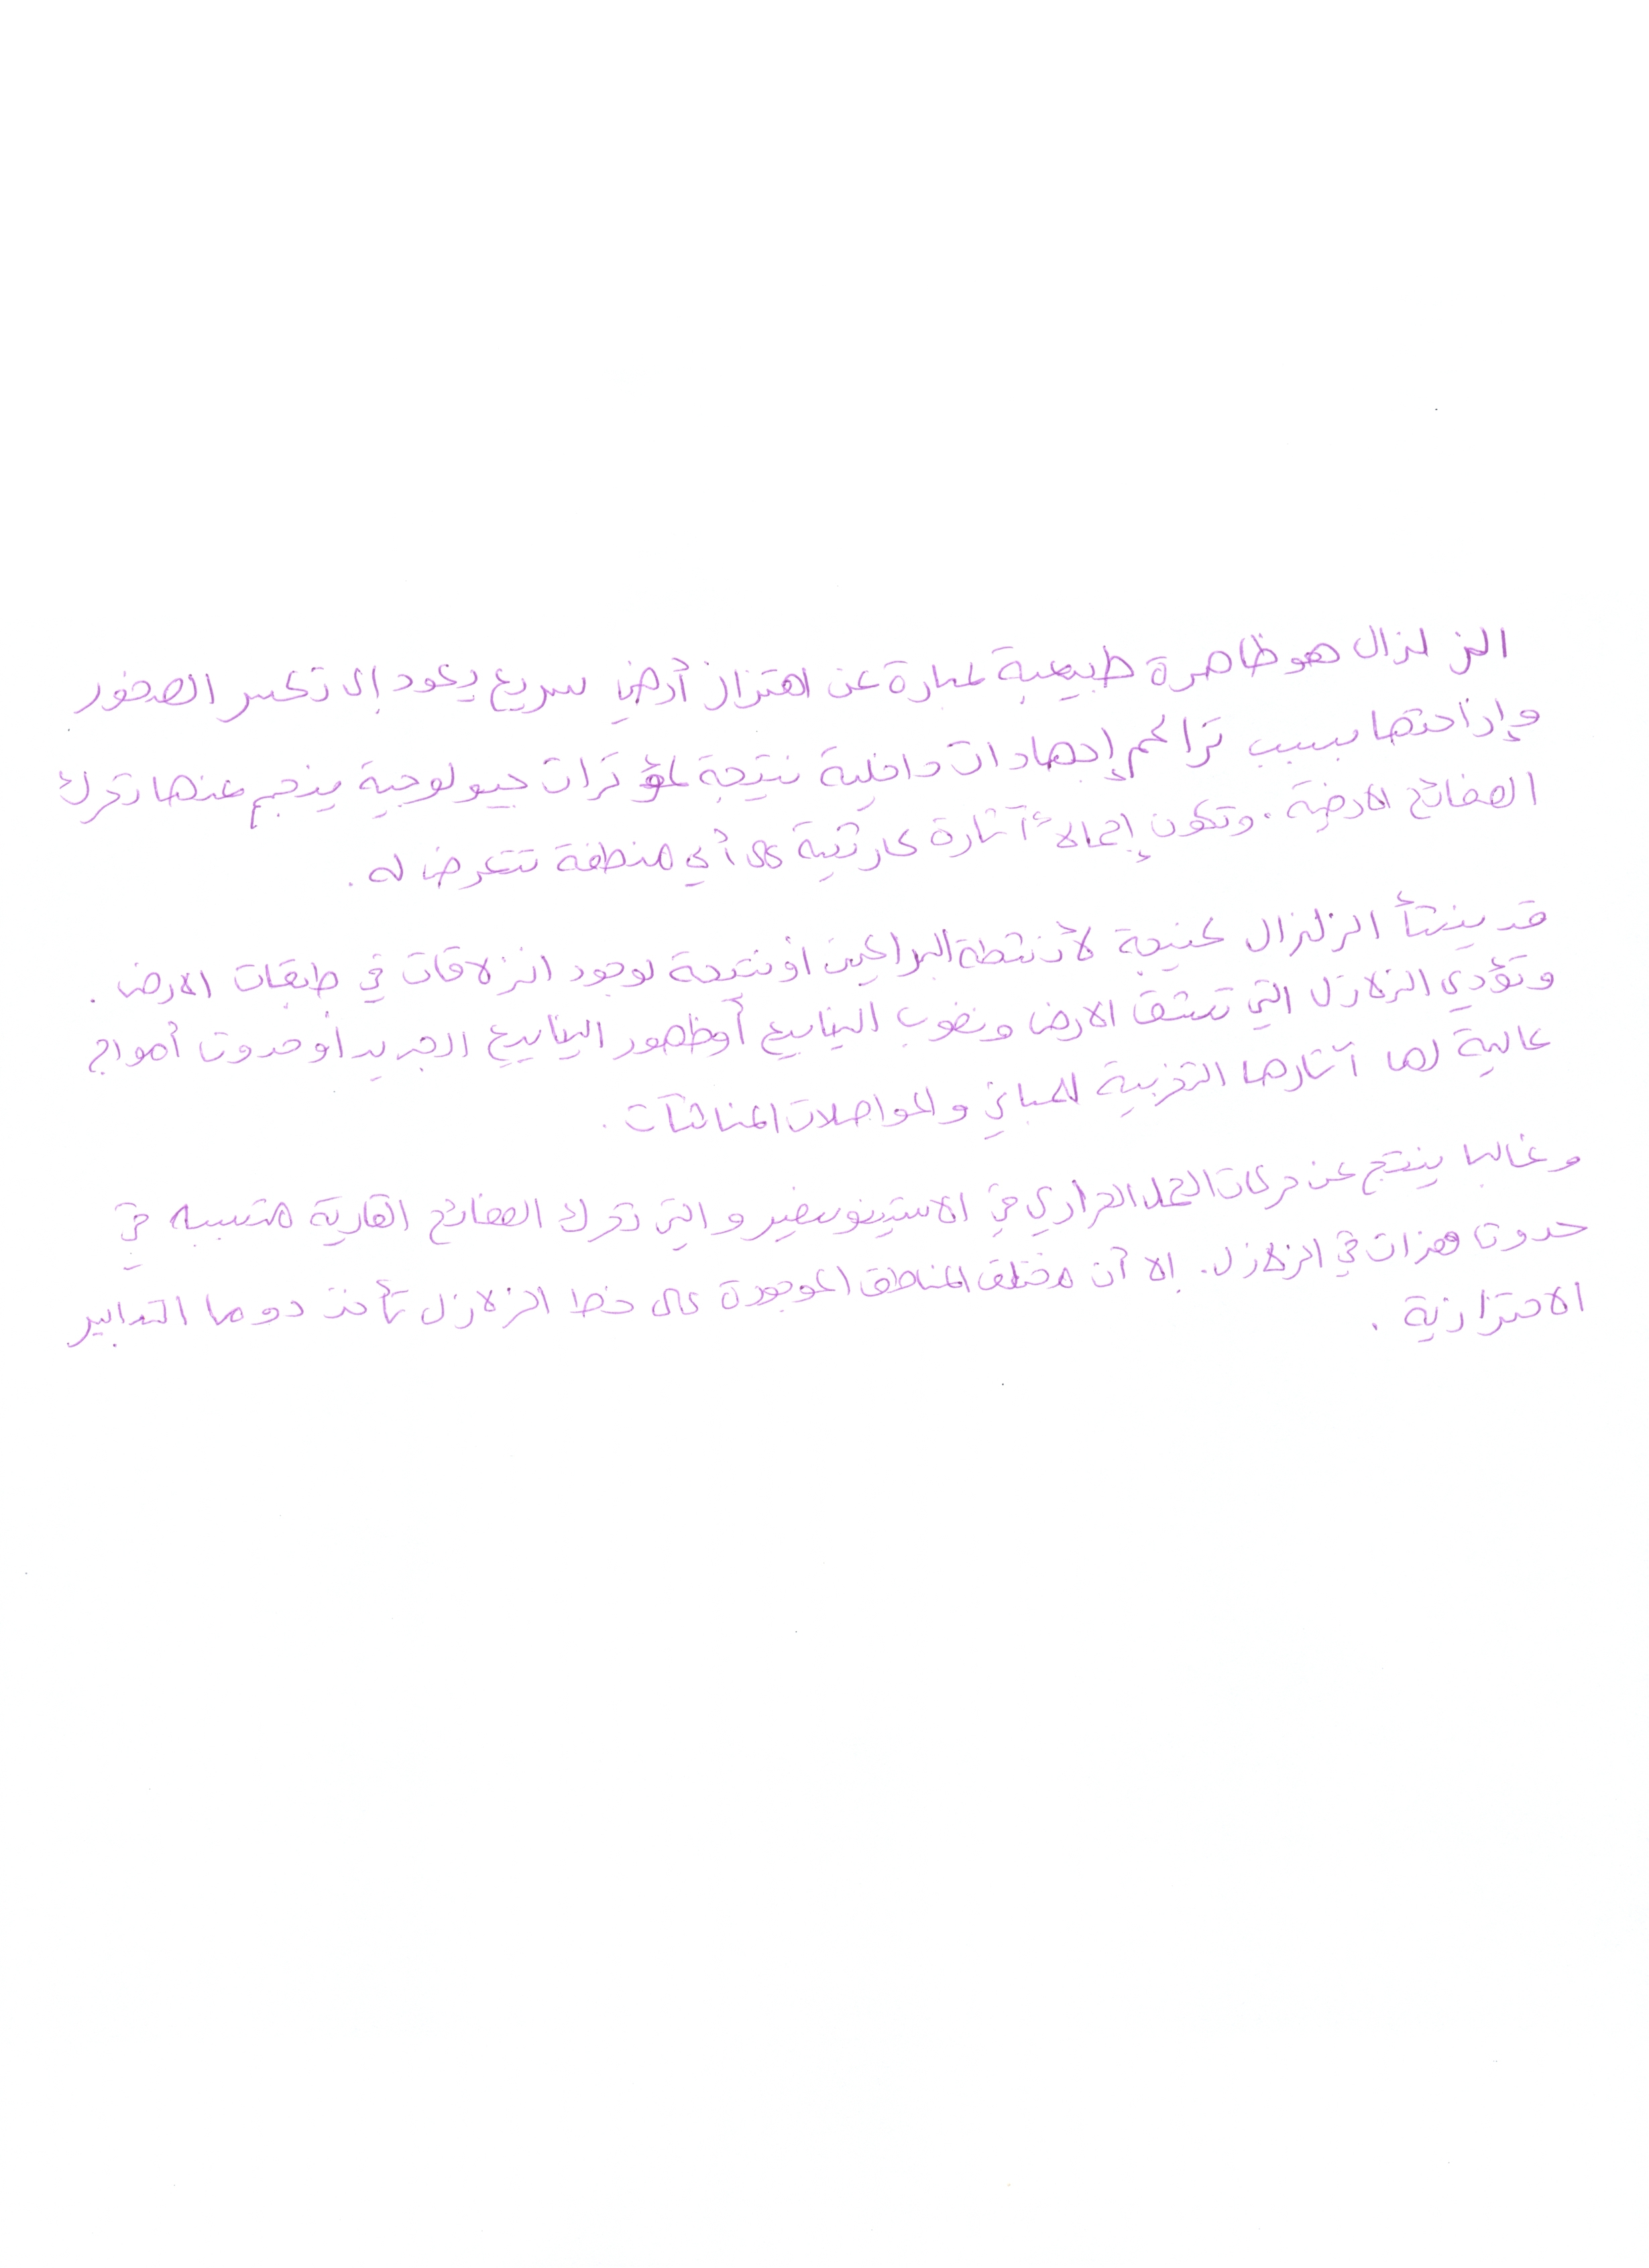 الزلزال هو ظاهرة طبيعية عبارة عن اهتزاز أرضي سريع يعود إلى تكسر الصخور
وإزاحتها بسبب تراكم إجهادات داخلية نتيجة لمؤثرات جيولوجية ينجم عنها تحرك
الصفائح الأرضية. وتكون إجمالاً آثارة كارثية على أي منطقة تتعرض له.
قد ينشأ الزلزال كنتيجة لأنشطة البراكين أو نتيجة لوجود انزلاقات في طبقات الارض.
وتؤدي الزلازل التي تشق الارض ونضوب الينابيع أوظهور الينابيع الجديد أو حدوث أمواج
عالية لها آثارها التخربية للمباني والمواصلات المنائآت.
وغالبا ينتج عن حركات الحمل الحراري في الاستينوسفير والتي تحرك الصفائح القارية متسببه في
حدوث هزات في الزلازل. إلا أن مختلف المناطق الموجودة على خط الزلازل تأخذ دوما التدابير
الاحترازية.